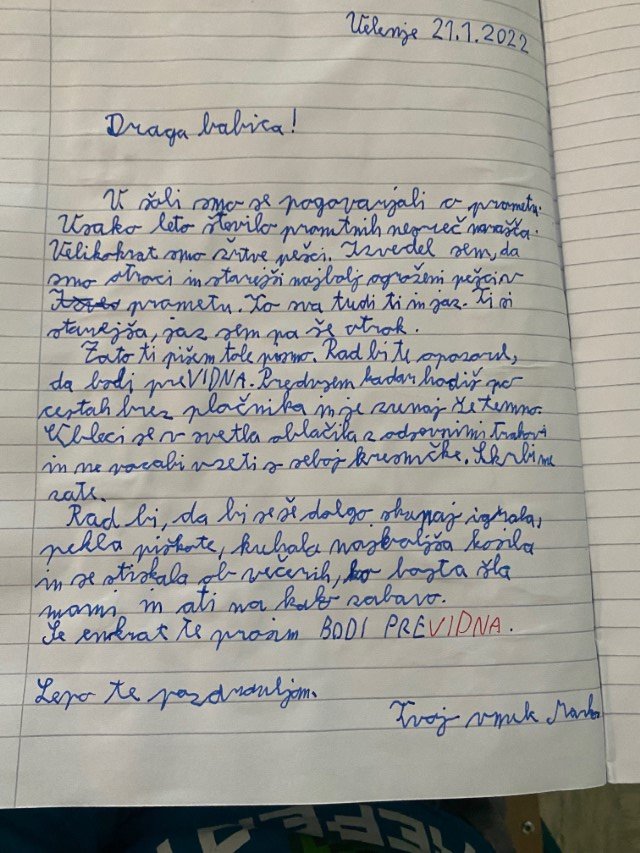 Velenje 21.1.2022
Draga babica!
V šoli smo se pogovarjali o prometu.
Vsako leto število prometnih nesreč narašča.
Velikokrat smo žrtve pešci. Izvedel sem, da
smo otroci in starejši najbolj ogroženi pešci v
prometu. To sva tudi ti in jaz. Ti si
starejša, jaz sem pa še otrok.
Zato ti pišem tole pismo. Rad bi te opozoril,
da bodi preVIDNA. Predvsem kadar hodiš po
cestah brez pločnika in je zunaj že temno.
Obleci se v svetla oblačila z odsevnimi trakovi
in ne pozabi vzeti s seboj kresničke. Skrbi me
zate.
Rad bi, da bi se še dolgo skupaj igrala,
pekla piškote, kuhala najboljša kosila
in se stiskala ob večerih, ko bosta šla
mami in ati na kako zabavo.
Še enkrat te prosim BODI PREVIDNA.
Lepo te pozdravljam.
Tvoj vnuk